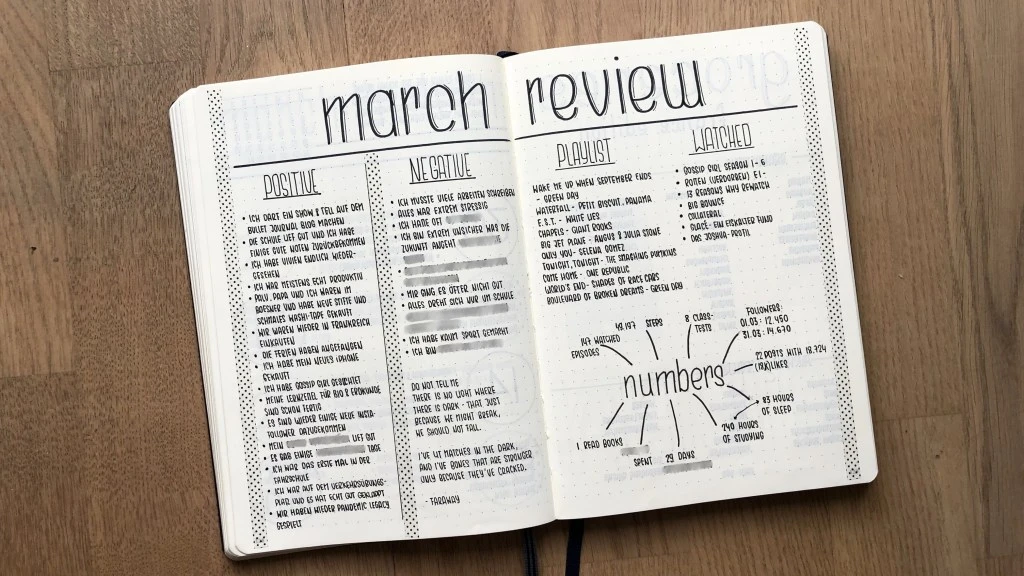 march review
POSITIVE
• ICH DARF EIN SHOW & TELL AUF DEM
BULLET JOURNAL BLOG MACHEN
• DIE SCHULE LIEF GUT UND ICH HABE
EINIGE GUTE NOTEN ZURÜCKBEKOMMEN
• ICH HABE VIVIEN ENDLICH WIEDER-
GESEHEN
• ICH WAR MEISTENS ECHT PRODUKTIV
• PAUL, PAPA UND ICH WAREN IM
BOESNER UND HABE NEUE STIFTE UND
SCHMALES WASHI-TAPE GEKAUFT
• WIR WAREN WIEDER IN FRANKREICH
EINKAUFEN
• DIE FERIEN HABEN ANGEFANGEN
• ICH HABE MEIN NEUES IPHONE
GEKAUFT
• ICH HABE GOSSIP GIRL GESUCHTET
• MEINE LERNZETTEL FÜR BIO & ERDKUNDE
SIND SCHON FERTIG
• ES SIND WIEDER EINIGE NEUE INSTA-
FOLLOWER DAZUGEKOMMEN
• MEIN LIEF GUT
• ES GAB EINIGE TAGE
• ICH WAR DAS ERSTE MAL IN DER
FAHRSCHULE
• ICH WAR AUF DEM VERKEHRSÜBUNGS-
PLATZ UND ES HAT ECHT GUT GEKLAPPT
• WIR HABEN WIEDER PANDEMIC LEGACY
GESPIELT
NEGATIVE
• ICH MUSSTE VIELE ARBEITEN SCHREIBEN
• ALLES WAR EXTREM STRESSIG
• ICH HATTE OFT
• ICH BIN EXTREM UNSICHER WAS DIE
ZUKUNFT ANGEHT
• MIR GING ES ÖFTER NICHT GUT
• ALLES DREHT SICH NUR UM SCHULE
• ICH HABE KAUM SPORT GEMACHT
• ICH BIN
DO NOT TELL ME
THERE IS NO LIGHT WHERE
THERE IS DARK - THAT JUST
BECAUSE WE MIGHT BREAK,
WE SHOULD NOT FALL.
I'VE LIT MATCHES IN THE DARK,
AND I'VE BONES THAT ARE STRONGER
ONLY BECAUSE THEY'VE CRACKED.
- TARAWAY
PLAYLIST
WAKE ME UP WHEN SEPTEMBER ENDS
- GREEN DAY
WATERFALL - PETIT BISCUIT, PANAMA
E.S.T. - WHITE LIES
CHAPELS - GIANT ROOKS
BIG JET PLANE - ANGUS & JULIA STONE
ONLY YOU - SELENA GOMEZ
TONIGHT, TONIGHT - THE SMASHING PUMKINS
COME HOME - ONE REPUBLIC
WORLD'S END - SHADES OF RACS CARS
BOULEVARD OF BROKEN DREAMS - GREEN DAY
WATCHED
• GOSSIP GIRL SEASON 1 - 6
• ROTTEN (VERDORBEN) E1 -
• 13 REASONS WHY REWATCH
• BIG BOUNCE
• COLLATERAL
• GLACÉ - EIN EISKALTER FUND
• DAS JOSHUA-PROFIL
numbers
147 WATCHED
EPISODES
48,197 STEPS
8 CLASS-
TESTS
FOLLOWERS:
01.03: 12.450
31.03: 14.670
22 POSTS WITH 18.724
(MAX) LIKES
83 HOURS
OF SLEEP
240 HOURS
OF STUDYING
29 DAYS
SPENT
1 READ BOOKS